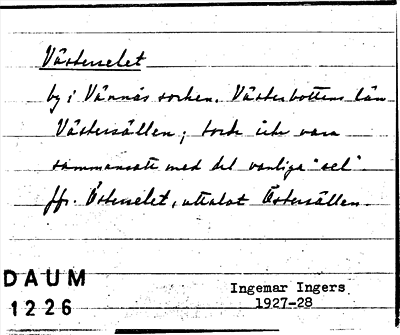 Västerselet
by i Vännäs socken. Västerbottens län
Västersällen; torde icke vara
sammansatt med det vanliga "sel".
jfr. Österselet, uttalat Östersällen.
DAUM
1226
Ingemar Ingers
1927-28